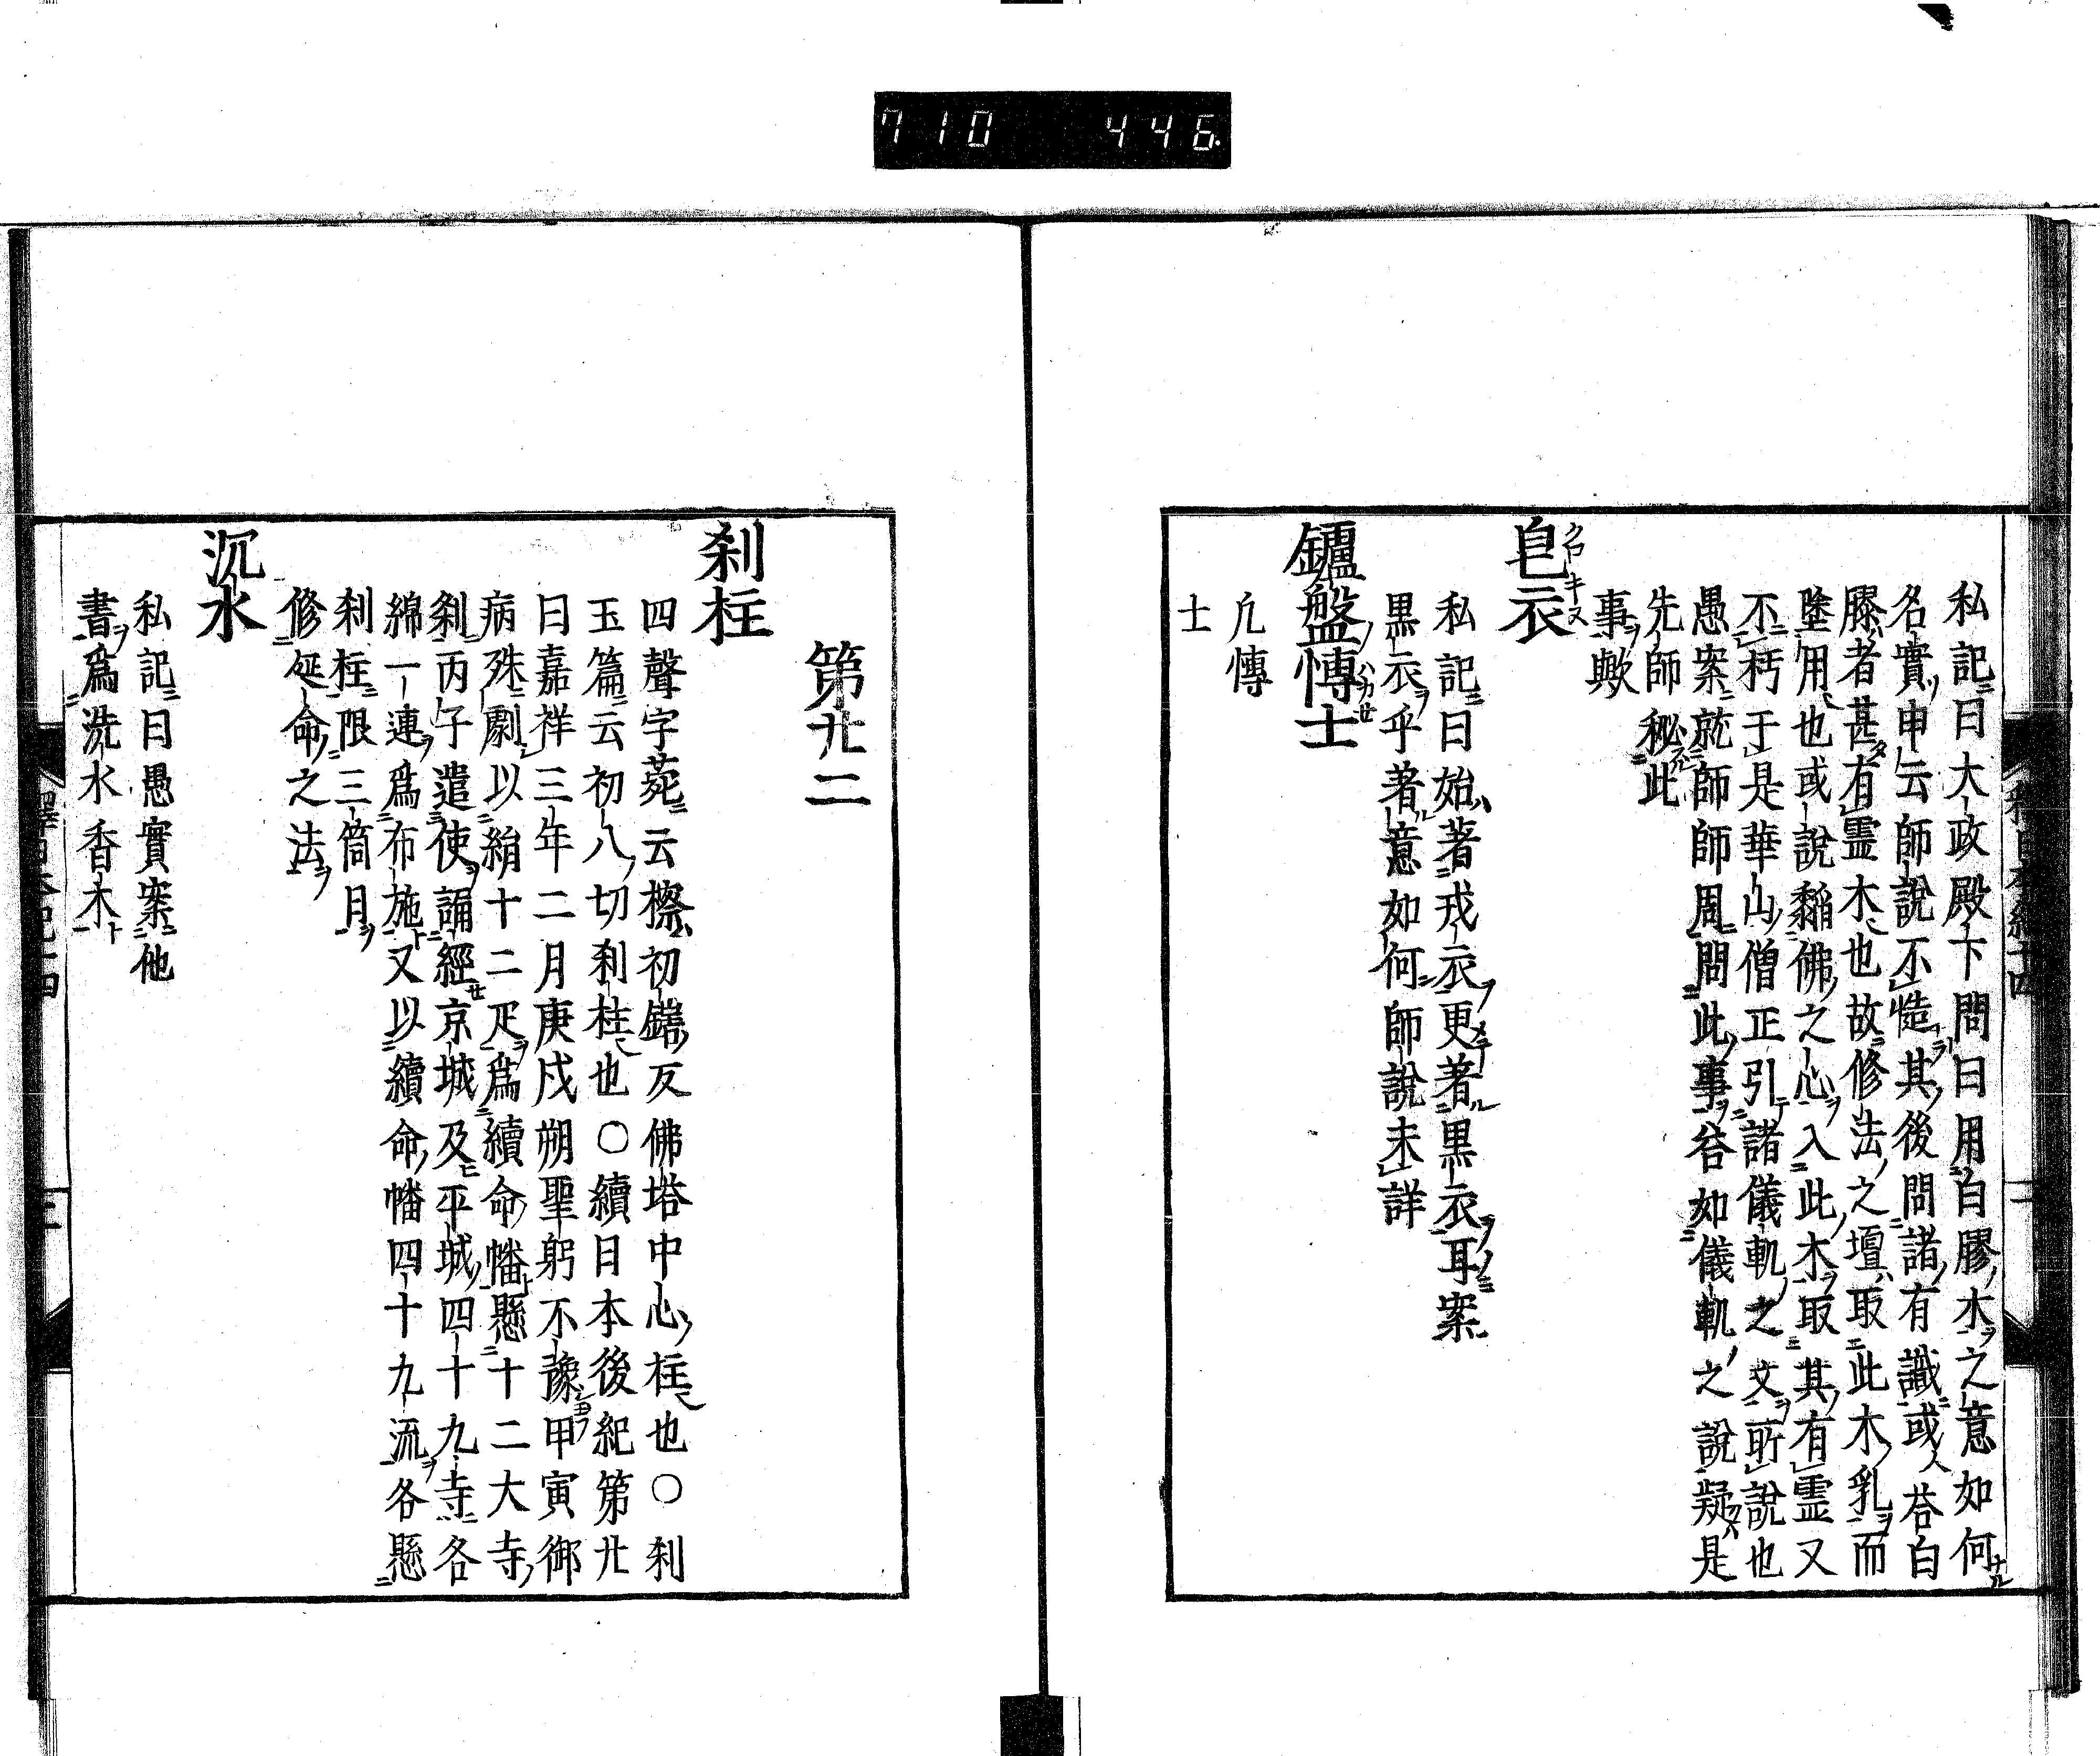 710 446
私記曰大政殿下問曰用白膠木之意如何
名實申云師說不慥其後問諸有識或人荅白
膠者甚有霊木也故修法之壇取此木乳而
塗用也或說黐佛之心入此木取其有霊又
不朽于是華山僧正引諸儀軌之文所說也
愚案就師師周問此事荅如儀軌之說疑是
先師秘此
事歟
皂衣
私記曰始著戎衣更著黒衣耳案
黒衣乎著意如何師說未詳
鑪盤愽士
凢愽
士
第廿二
刹柱
四聲字苑云檫初鎋反佛塔中心柱也○刹
玉篇云初八切刹柱也○續日本後紀第廿
曰嘉祥三年二月庚戌朔聖躬不豫甲寅御
病殊劇以絹十二疋為續命幡懸十二大寺
刹丙子遣使誦經京城及平城四十九寺各
綿一連為布施又以續命幡四十九流各懸
刹柱限三箇月
修延命之法
沉水
私記曰愚實案他
書為洗水香木